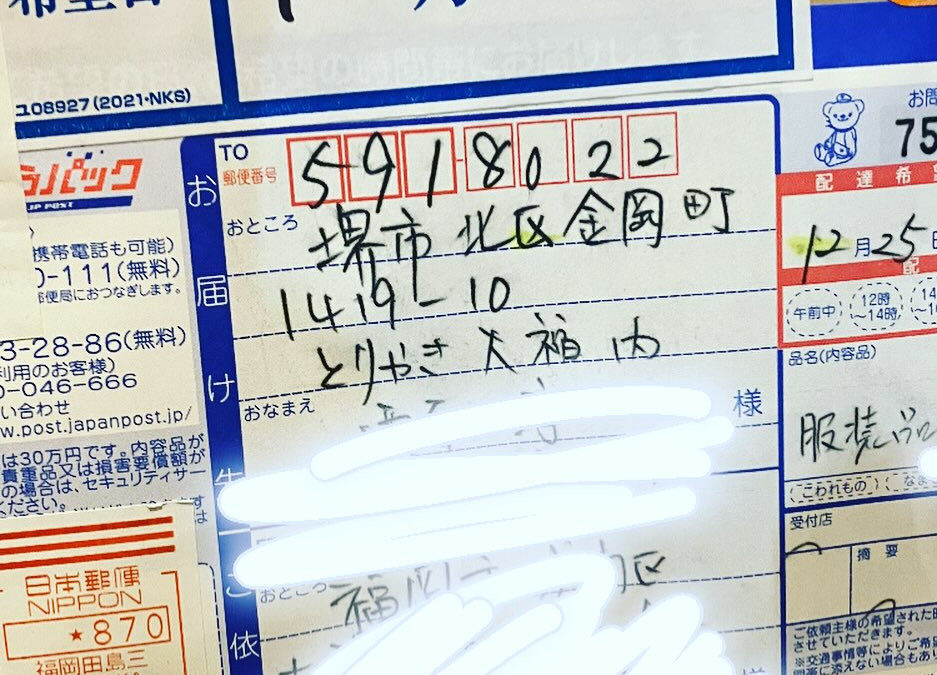 ユ08927(2021・NKS)
TO
郵便番号
591-8022
おところ
堺市北区金岡町
1419-10
とりやき大福内
おなまえ
様
お届け先
ゆうパック
JP POST
携帯電話も可能)
0-111(無料)
郵便局におつなぎします。
3-28-86(無料)
利用のお客様)
0-046-666
い合わせ
w.post.japanpost.jp/
は30万円です。内容品が
貴重品又は損害要償額が
の場合は、セキュリティサー
ください。
日本郵便
NIPPON
★870
福岡田島三
おところ
ご依
お問
75
配達希
12月25日
午前中
12時
~14時
品名(内容品)
服装品
こわれもの
受付店
摘要
ご依頼主様の希望された
させていただきます。